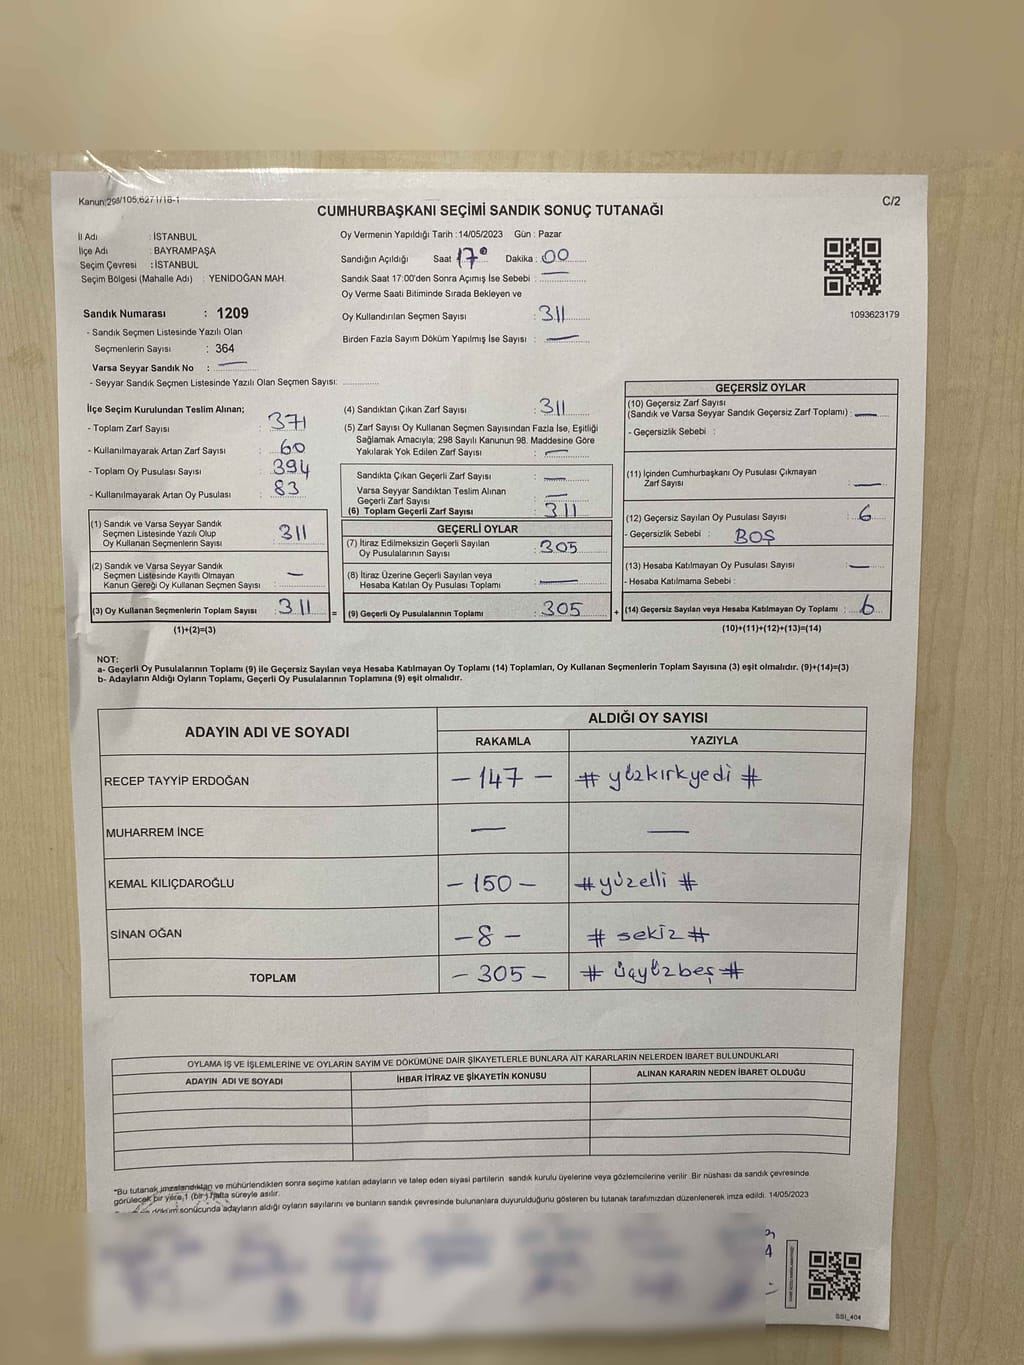 Kanun;298/105,6271/16-1
C/2
CUMHURBAŞKANI SEÇİMİ SANDIK SONUÇ TUTANAĞI
İl Adı : İSTANBUL
İlçe Adı : BAYRAMPAŞA
Seçim Çevresi : İSTANBUL
Seçim Bölgesi (Mahalle Adı) : YENİDOĞAN MAH.
Oy Vermenin Yapıldığı Tarih :14/05/2023 Gün : Pazar
Sandığın Açıldığı Saat 17° Dakika : 00
Sandık Saat 17:00'den Sonra Açımış İse Sebebi : —
Oy Verme Saati Bitiminde Sırada Bekleyen ve
Oy Kullandırılan Seçmen Sayısı : 311
Birden Fazla Sayım Döküm Yapılmış İse Sayısı : —
1093623179
Sandık Numarası : 1209
- Sandık Seçmen Listesinde Yazılı Olan
Seçmenlerin Sayısı : 364
Varsa Seyyar Sandık No : —
- Seyyar Sandık Seçmen Listesinde Yazılı Olan Seçmen Sayısı:
İlçe Seçim Kurulundan Teslim Alınan;
- Toplam Zarf Sayısı : 371
- Kullanılmayarak Artan Zarf Sayısı : 60
- Toplam Oy Pusulası Sayısı : 394
- Kullanılmayarak Artan Oy Pusulası : 83
(1) Sandık ve Varsa Seyyar Sandık
Seçmen Listesinde Yazılı Olup
Oy Kullanan Seçmenlerin Sayısı : 311
(2) Sandık ve Varsa Seyyar Sandık
Seçmen Listesinde Kayıtlı Olmayan
Kanun Gereği Oy Kullanan Seçmen Sayısı : —
(3) Oy Kullanan Seçmenlerin Toplam Sayısı : 311 =
(1)+(2)=(3)
(4) Sandıktan Çıkan Zarf Sayısı : 311
(5) Zarf Sayısı Oy Kullanan Seçmen Sayısından Fazla İse, Eşitliği
Sağlamak Amacıyla; 298 Sayılı Kanunun 98. Maddesine Göre
Yakılarak Yok Edilen Zarf Sayısı : —
Sandıkta Çıkan Geçerli Zarf Sayısı : —
Varsa Seyyar Sandıktan Teslim Alınan
Geçerli Zarf Sayısı : —
(6) Toplam Geçerli Zarf Sayısı : 311
GEÇERLİ OYLAR
(7) İtiraz Edilmeksizin Geçerli Sayılan
Oy Pusulalarının Sayısı : 305
(8) İtiraz Üzerine Geçerli Sayılan veya
Hesaba Katılan Oy Pusulası Toplamı : —
(9) Geçerli Oy Pusulalarının Toplamı : 305 +
GEÇERSİZ OYLAR
(10) Geçersiz Zarf Sayısı
(Sandık ve Varsa Seyyar Sandık Geçersiz Zarf Toplamı) : —
- Geçersizlik Sebebi :
(11) İçinden Cumhurbaşkanı Oy Pusulası Çıkmayan
Zarf Sayısı : —
(12) Geçersiz Sayılan Oy Pusulası Sayısı : 6
- Geçersizlik Sebebi : BOŞ
(13) Hesaba Katılmayan Oy Pusulası Sayısı : —
- Hesaba Katılmama Sebebi :
(14) Geçersiz Sayılan veya Hesaba Katılmayan Oy Toplamı : 6
(10)+(11)+(12)+(13)=(14)
NOT:
a- Geçerli Oy Pusulalarının Toplamı (9) ile Geçersiz Sayılan veya Hesaba Katılmayan Oy Toplamı (14) Toplamları, Oy Kullanan Seçmenlerin Toplam Sayısına (3) eşit olmalıdır. (9)+(14)=(3)
b- Adayların Aldığı Oyların Toplamı, Geçerli Oy Pusulalarının Toplamına (9) eşit olmalıdır.
ADAYIN ADI VE SOYADI
ALDIĞI OY SAYISI
RAKAMLA YAZIYLA
RECEP TAYYİP ERDOĞAN – 147 – # yüzkırkyedi #
MUHARREM İNCE — —
KEMAL KILIÇDAROĞLU – 150 – # yüzelli #
SİNAN OĞAN – 8 – # sekiz #
TOPLAM – 305 – # üçyüzbeş #
OYLAMA İŞ VE İŞLEMLERİNE VE OYLARIN SAYIM VE DÖKÜMÜNE DAİR ŞİKAYETLERLE BUNLARA AİT KARARLARIN NELERDEN İBARET BULUNDUKLARI
ADAYIN ADI VE SOYADI İHBAR İTİRAZ VE ŞİKAYETİN KONUSU ALINAN KARARIN NEDEN İBARET OLDUĞU
"Bu tutanak imzalandıktan ve mühürlendikten sonra seçime katılan adayların ve talep eden siyasi partilerin sandık kurulu üyelerine veya gözlemcilerine verilir. Bir nüshası da sandık çevresinde
görülecek bir yere 1 (bir) hafta süreyle asılır.
döküm sonucunda adayların aldığı oyların sayılarını ve bunların sandık çevresinde bulunanlara duyurulduğunu gösteren bu tutanak tarafımızdan düzenlenerek imza edildi. 14/05/2023
SSI_404